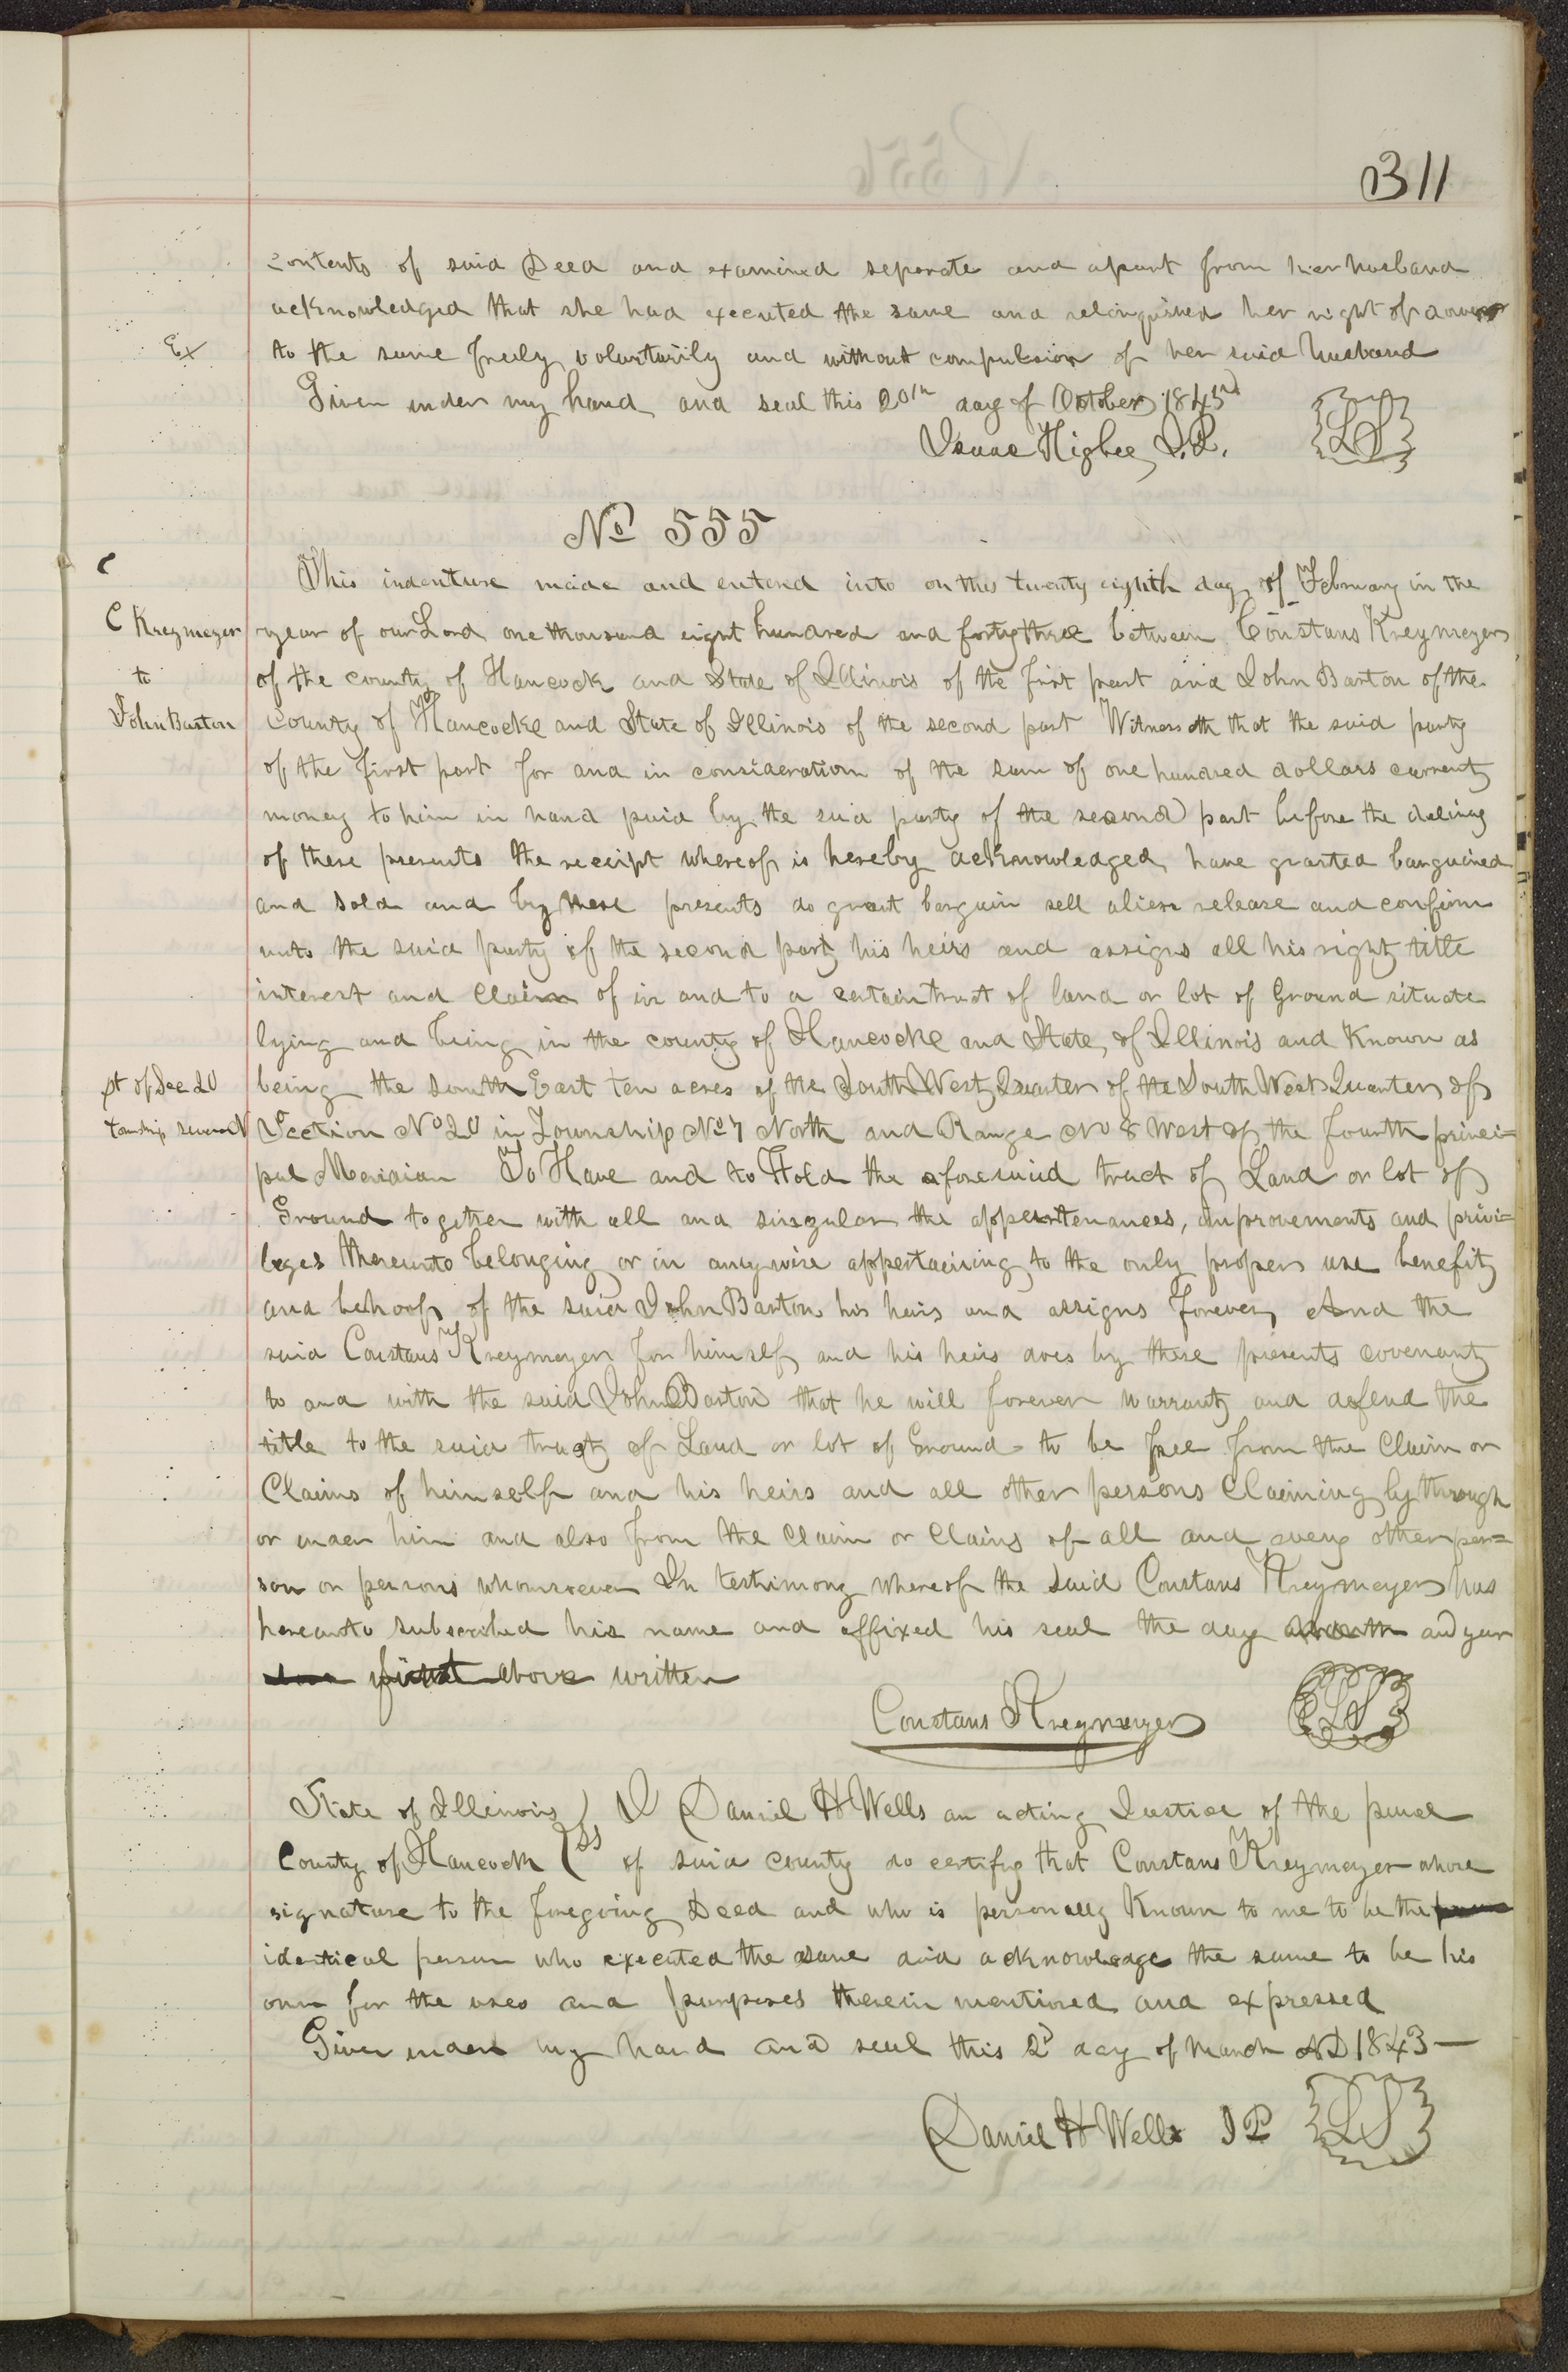 311
contents of said Deed and examined seperate and apart from her husband
acknowledged that she had executed the same and relinquished her right of dower
Ex
to the same freely voluntarily and without compulsion of her said husband
Given under my hand and seal this 20th day of October 1843rd
Isaac Higbee J.P. LS
No 555
C
This indenture made and entered into on this twenty eighth day of February in the
C Kreymeyer
year of our Lord one thousand eight hundred and forty three between Constans Kreymeyer
to
of the county of Hancock and State of Illinois of the first part and John Barton of the
John Barton
County of Hancocke and State of Illinois of the second part Witnesseth that the said party
of the first part for and in consideration of the sum of one hundred dollars current
money to him in hand paid by the said party of the second part before the delivery
of these presents the receipt whereof is hereby acknowledged have granted bargained
and sold and by these presents do grant bargain sell alien release and confirm
unto the said party of the second part his heirs and assigns all his right title
interest and claim of in and to a certain tract of land or lot of Ground situate
lying and being in the county of Hancocke and State of Illinois and Known as
pt of Sec 20
being the south East ten acres of the South West Quarter of the South West Quarter of
township seven N
Section No 20 in Township No 7 North and Range No 8 West of the fourth princi=
pal Meridian To Have and to Hold the aforesaid tract of Land or lot of
Ground together with all and singular the appertenances, improvements and privi=
leges thereunto belonging or in anywise appertaining to the only proper use benefit
and behoof of the said John Barton his heirs and assigns forever And the
said Constans Kreymeyer for himself and his heirs does by these presents covenant
to and with the said John Barton that he will forever warrant and defend the
title to the said tract of Land or lot of Ground to be free from the Claim or
Claims of himself and his heirs and all other persons Claiming by through
or under him and also from the Claim or Claims of all and every other per=
son or persons whomsoever In testimony whereof the said Constans Kreymeyer has
hereunto subscribed his name and affixed his seal the day month and year
first above written
Constans Kreymeyer LS
State of Illinois } I Daniel H Wells an acting Justice of the peace
County of Hancock } ss of said county do certify that Constans Kreymeyer whose
signature to the foregoing Deed and who is personally Known to me to be the
identical person who executed the same did acknowledge the same to be his
own for the uses and purposes therein mentioned and expressed
Given under my hand and seal this 2d day of March AD 1843—
Daniel H Wells J P LS